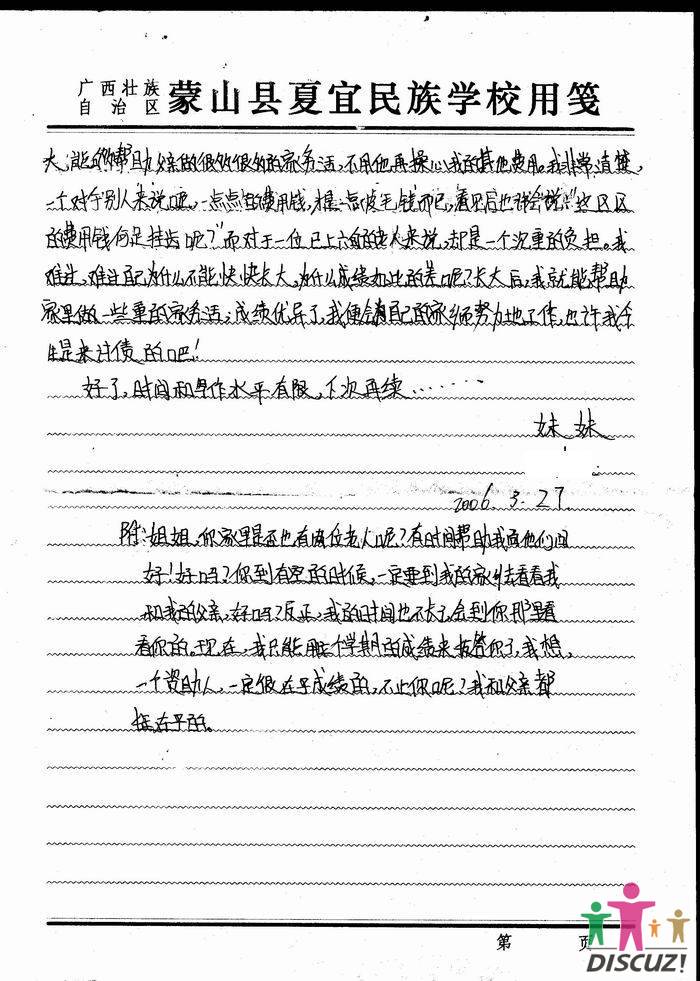 广西壮族
自治区 蒙山县夏宜民族学校用笺
大,能够帮助父亲做很多很多的家务活,不用他再操心我的其他费用。我非常清楚,
一个对于别人来说吧,一点点的费用钱,根一点皮毛钱而已,看见后也许会说:"这区区
的费用钱何足挂齿呢?"而对于一位已上六旬的老人来说,却是一个沉重的负担。我
难过,难过自己为什么不能快快长大,为什么成绩如此的差呢?长大后,我就能帮助
家里做一些重的家务活;成绩优异了,我便会自己的家乡努力地工作,也许我今
生是来讨债的吧!
好了,时间和写作水平有限,下次再续……
妹妹
2006.3.27.
附:姐姐,你家里是否也有两位老人呢?有时间帮助我向他们问
好!好吗?你到有空的时候,一定要到我的家乡去看看我
和我的父亲,好吗?反正,我的时间也不长了,会到你那里看
看你的。现在,我只能用一个学期的成绩来报答你了,我想,
一个资助人,一定很在乎成绩的,不止你呢?我和父亲都
挺在乎的。
第 页
DISCUZ!